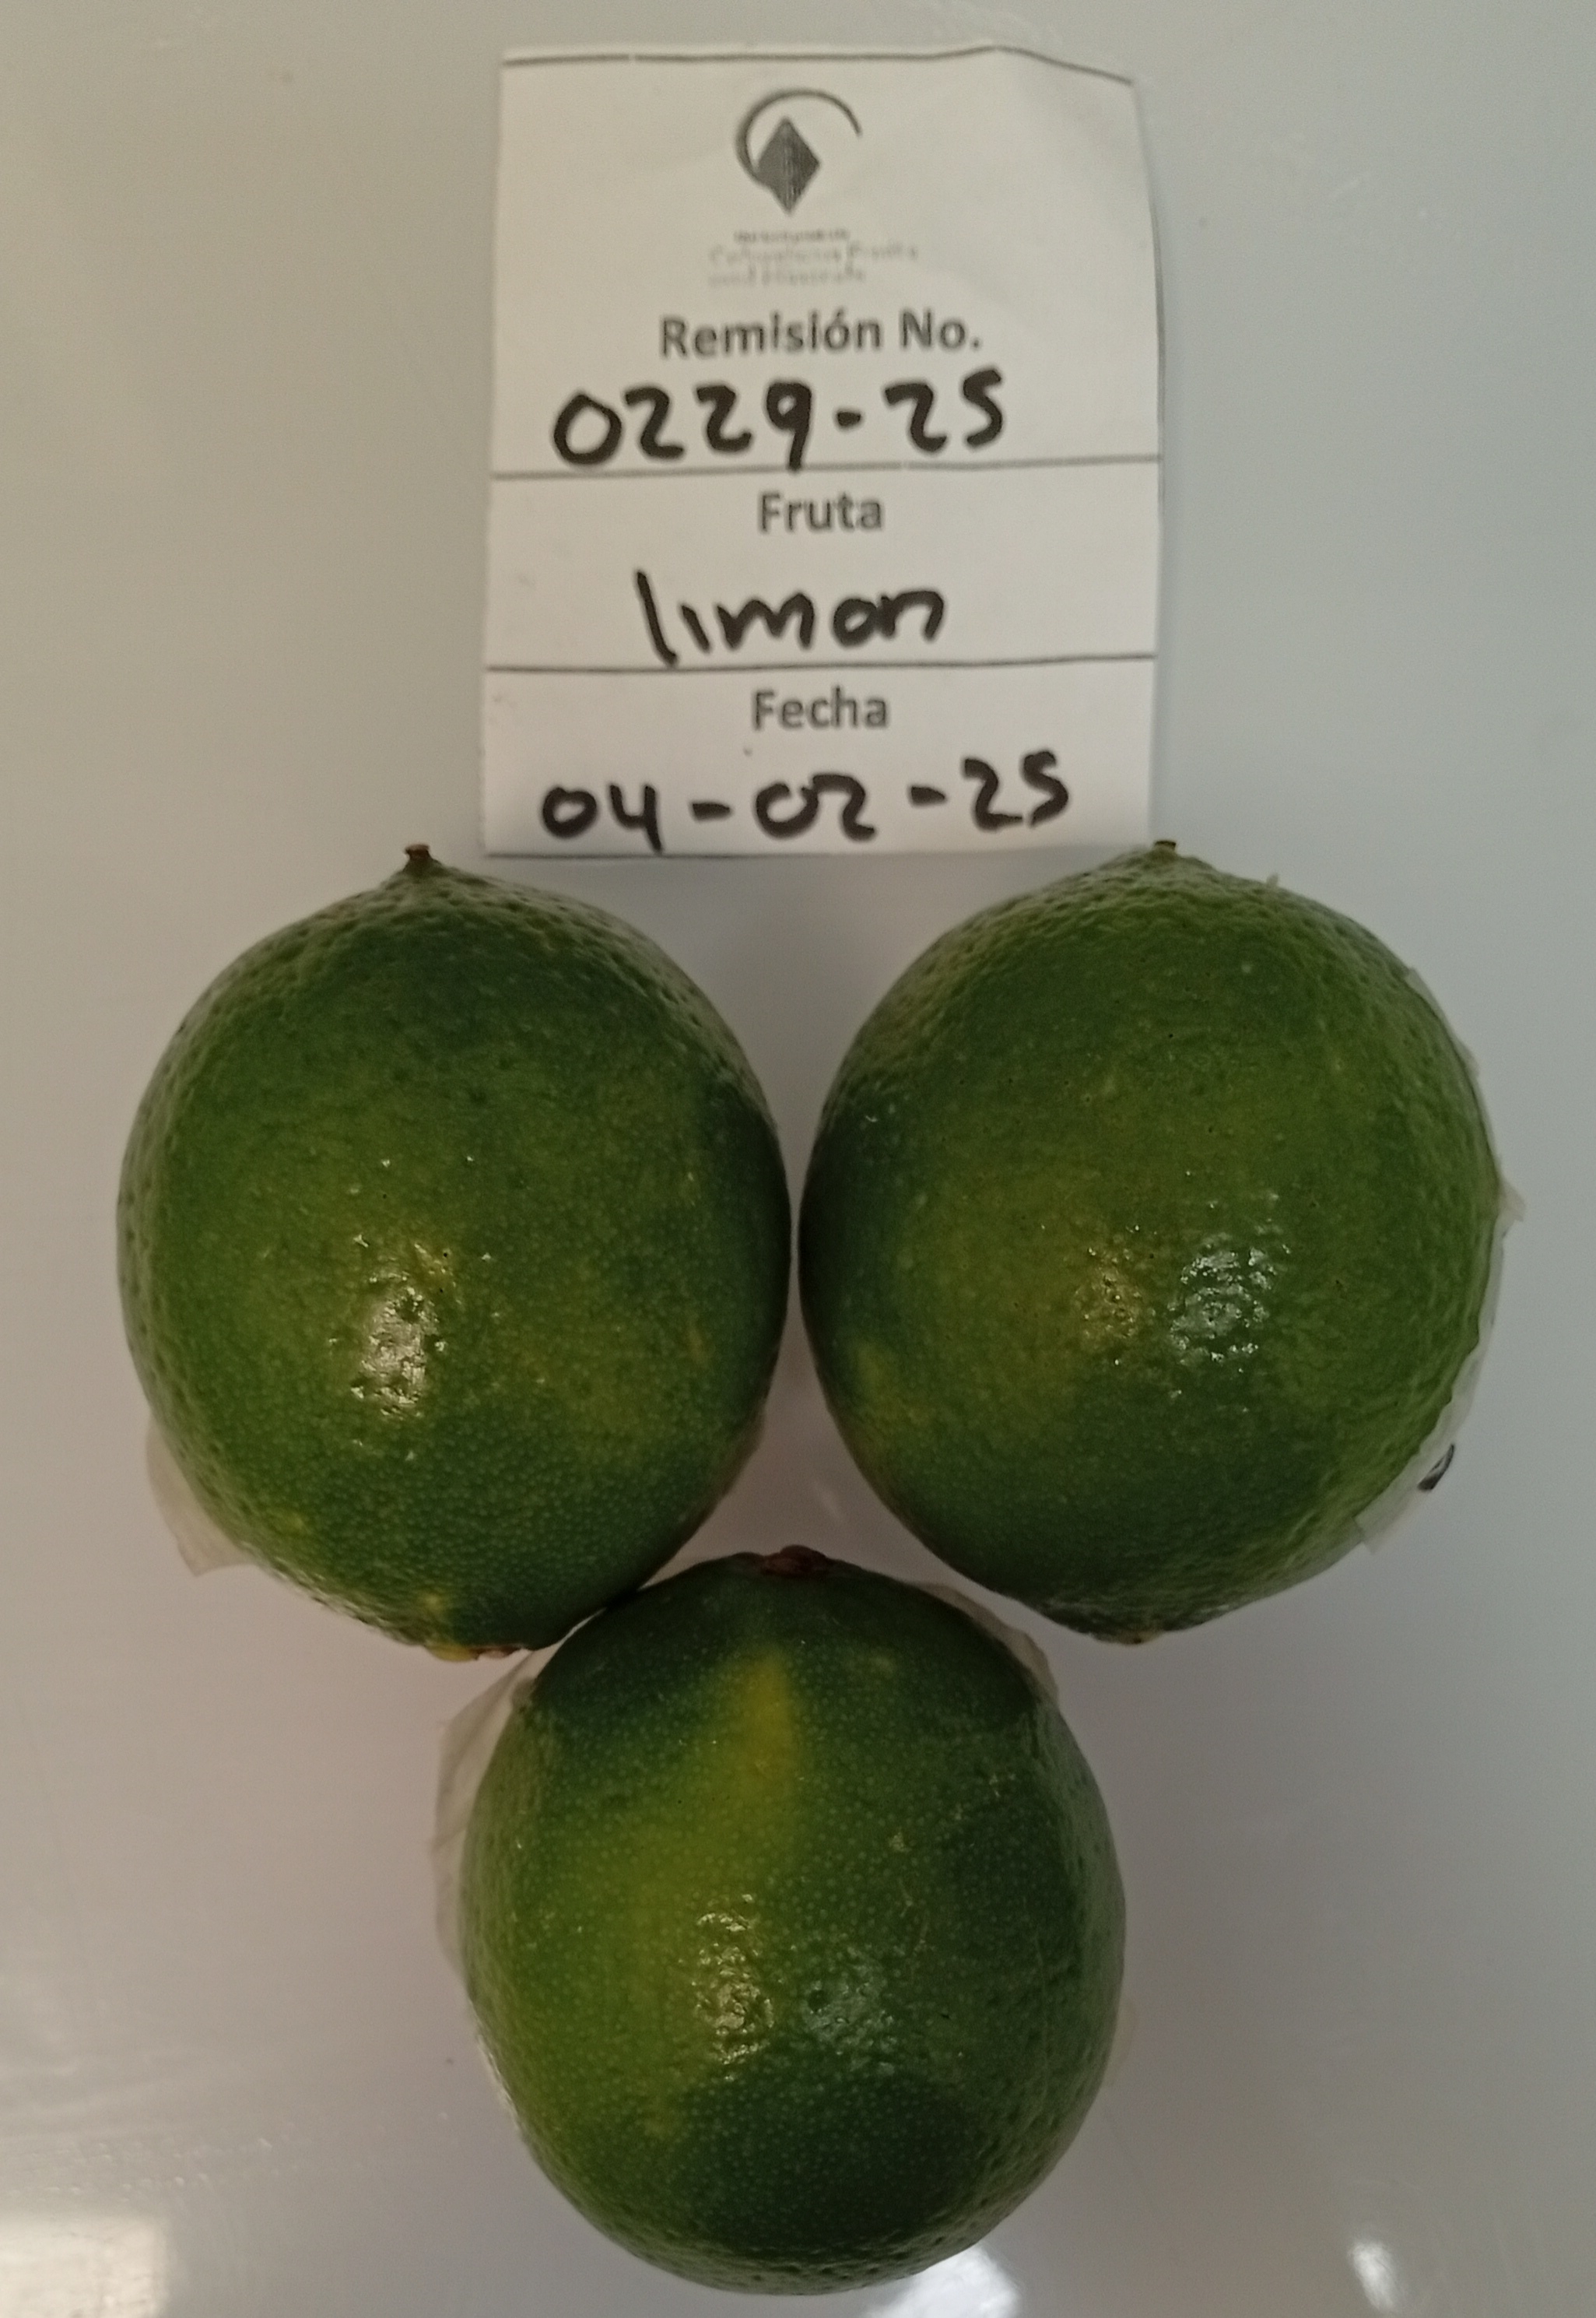 Remisión No.
0229-25
Fruta
limon
Fecha
04-02-25